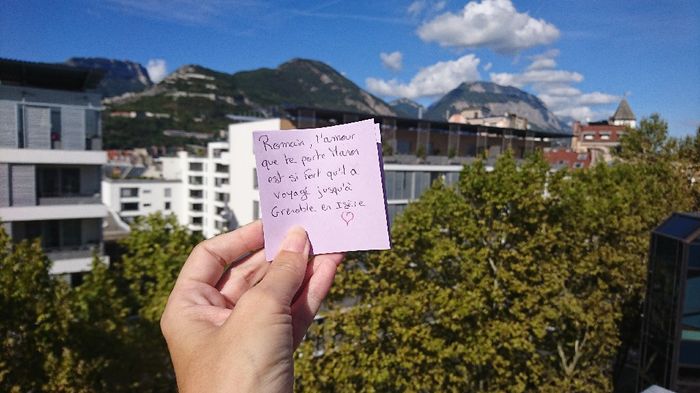 Romain, l'amour
que te porte Manon
est si fort qu'il a
voyagé jusqu'à
Grenoble en Isère